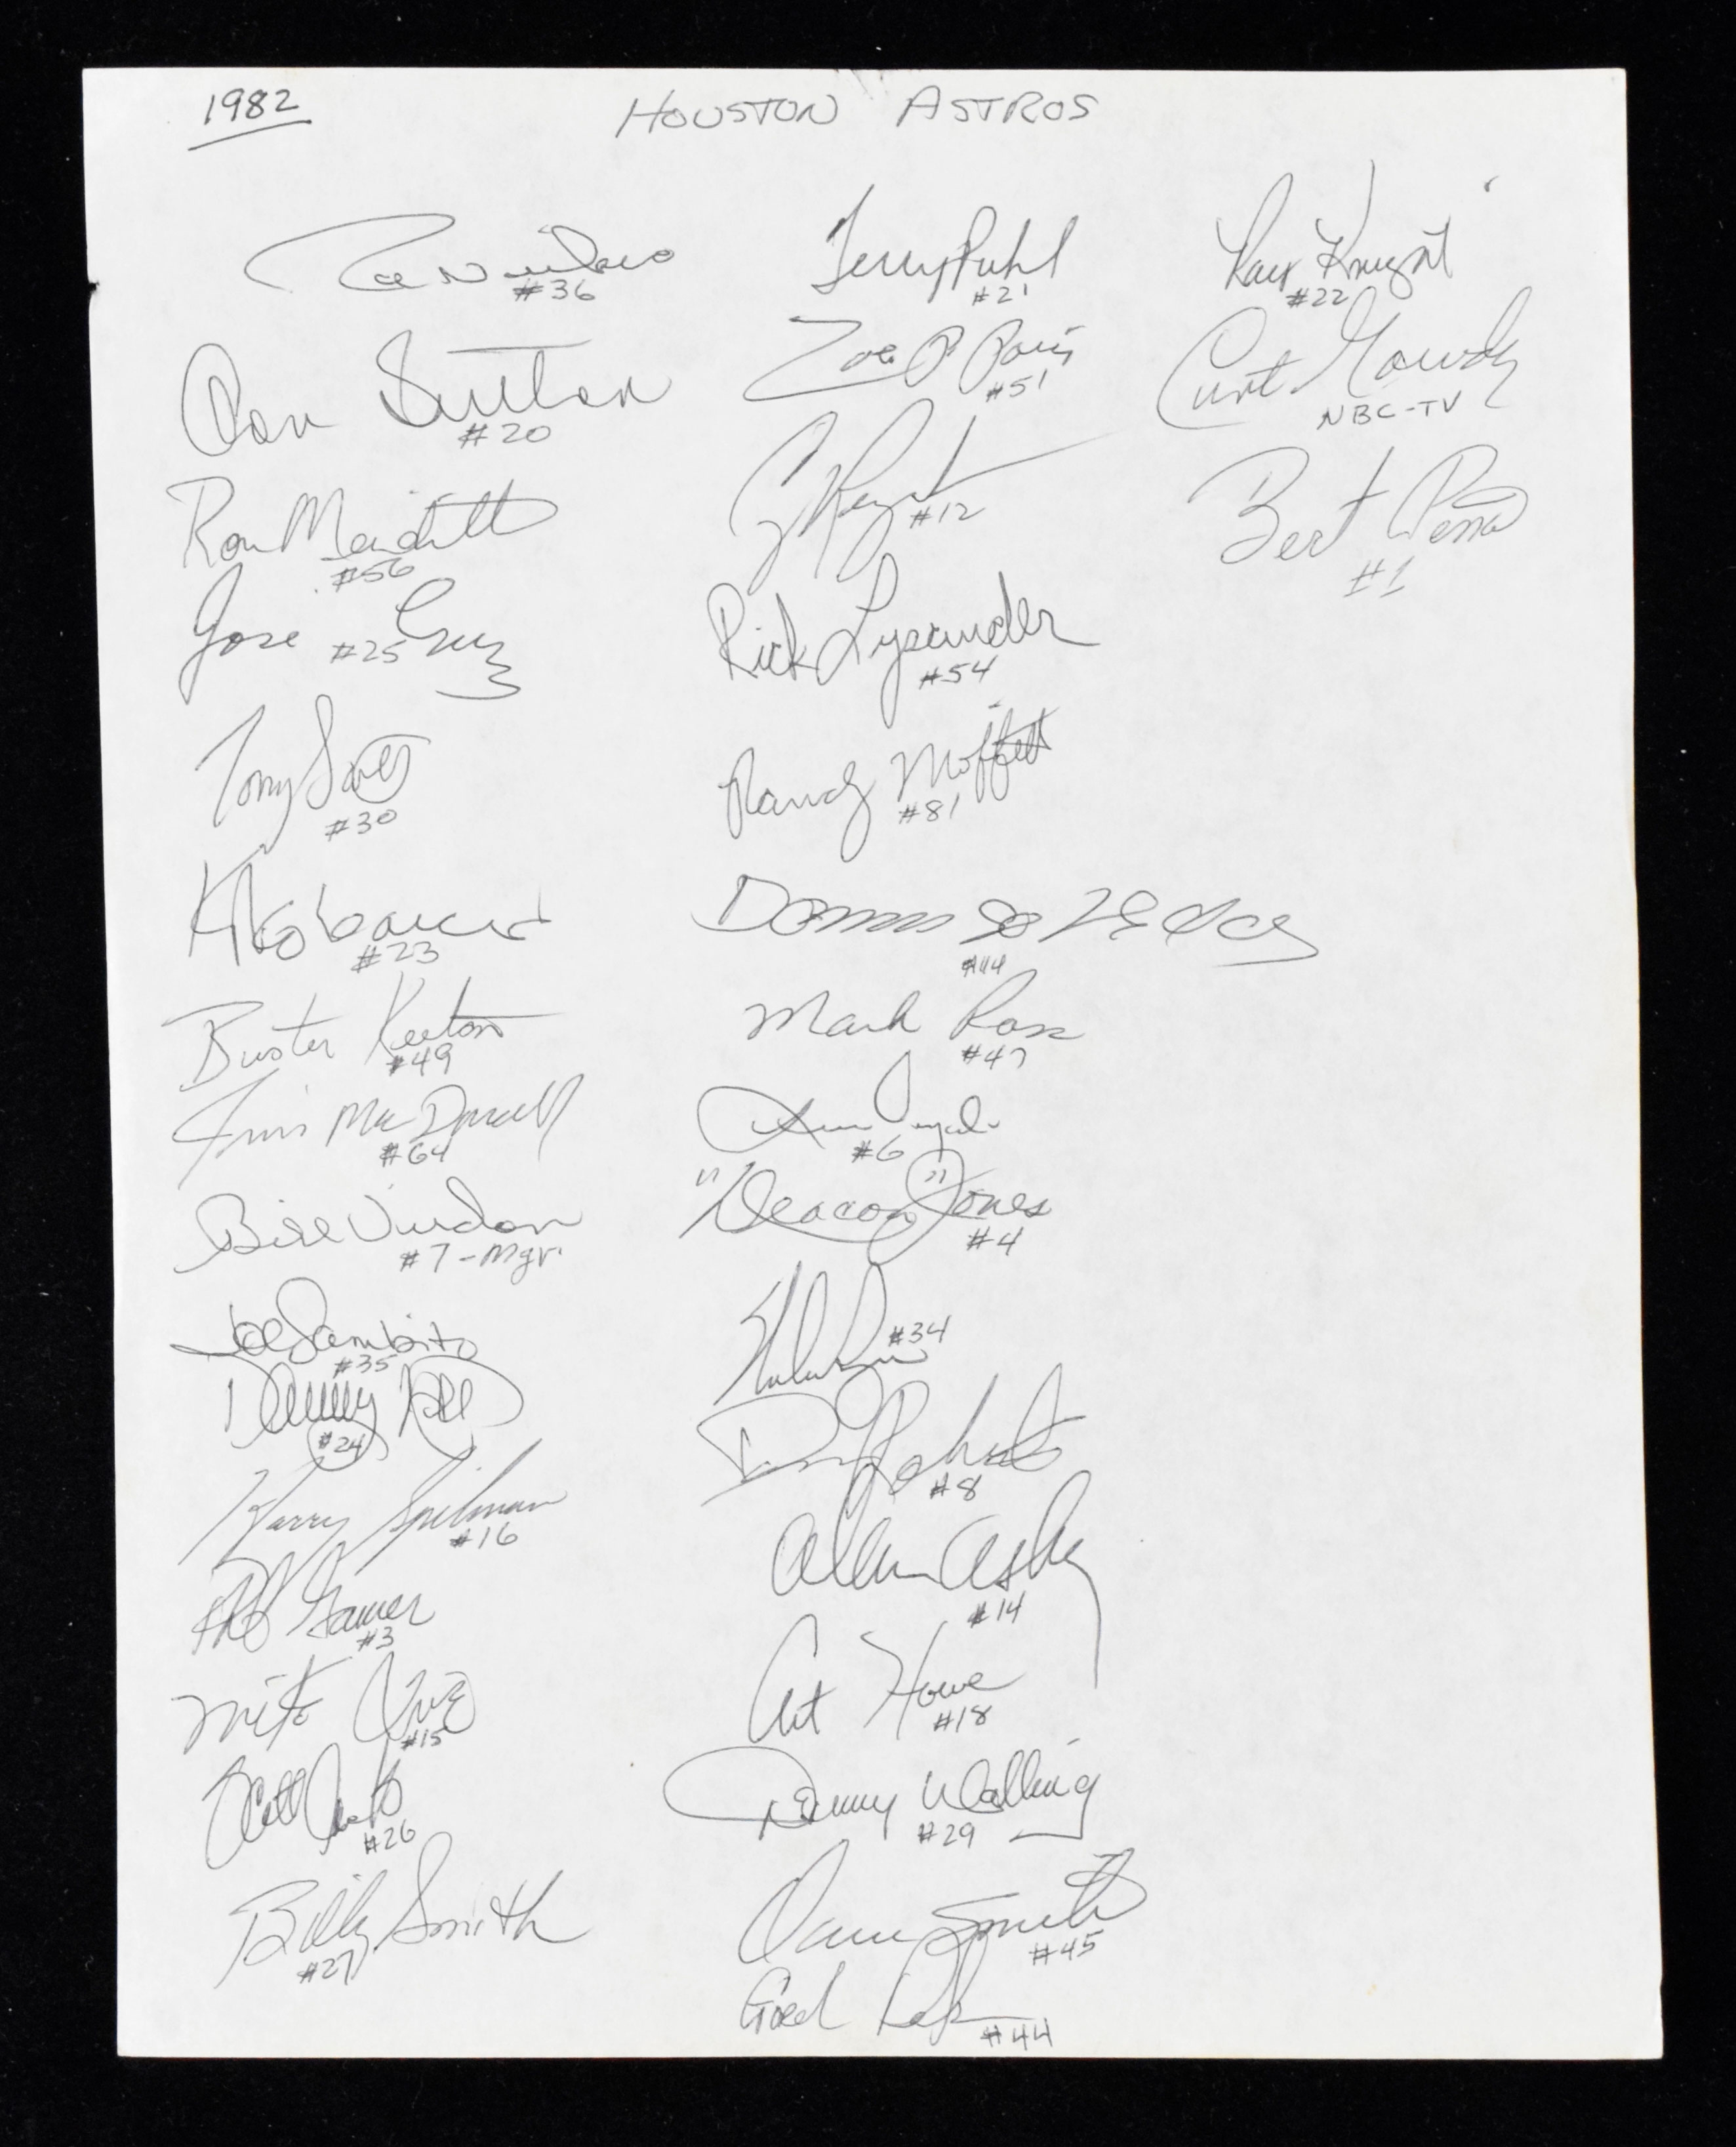 1982
HOUSTON ASTROS
Joe Niekro
#36
Don Sutton
#20
Ron Meridith
#56
Jose Cruz
#25
Tony Scott
#30
Kiko Garcia
#23
Buster Keeton
#49
Jim MacDonald
#64
Bill Virdon
#7-Mgr.
Joe Sambito
#35
Danny Heep
#24
Harry Spilman
#16
Phil Garner
#3
Mike Ivie
#15
Scott
#26
Billy Smith
#27
Terry Puhl
#21
#51
Craig Reynolds
#12
Rick Lysander
#54
Randy Moffitt
#81
#44
Mark Ross
#47
#6
"Deacon" Jones
#4
#34
Dave Roberts
#8
Alan Ashby
#14
Art Howe
#18
Denny Walling
#29
Dave Smith
#45
#44
Ray Knight
#22
Curt Gowdy
NBC-TV
Bert Pena
#1